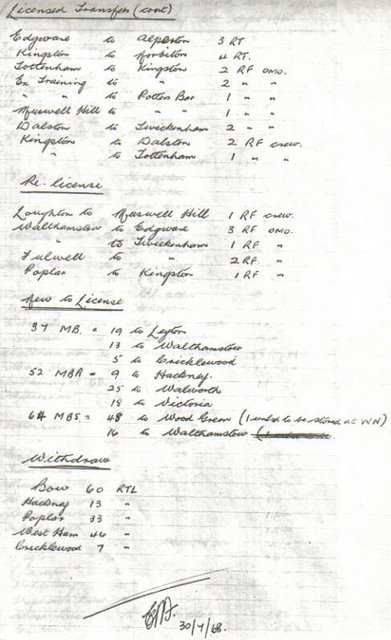 Licensed Transfer (cont)
Edgware to Alperton 3 RT
Kingston to Norbiton 4 RT.
Tottenham to Kingston 2 RF OMO.
Ex Training to " 2 " "
" " to Potters Bar 1 " "
Muswell Hill to " " 1 " "
Dalston to Twickenham 2 " "
Kingston to Dalston 2 RF crew.
" to Tottenham 1 " "
Re-license
Loughton to Muswell Hill 1 RF crew.
Walthamstow to Edgware 3 RF OMO.
" to Twickenham 1 RF "
Fulwell to " 2 RF "
Poplar to Kingston 1 RF "
New to License
37 MB. = 19 to Leyton
13 to Walthamstow
5 to Cricklewood
52 MBA = 9 to Hackney.
25 to Walworth
18 to Victoria
64 MBS. = 48 to Wood Green (1 unlcd to be stored at WN)
16 to Walthamstow
Withdraw
Bow 60 RTL
Hackney 13 "
Poplar 33 "
West Ham 44 "
Cricklewood 7 "
30/7/68.